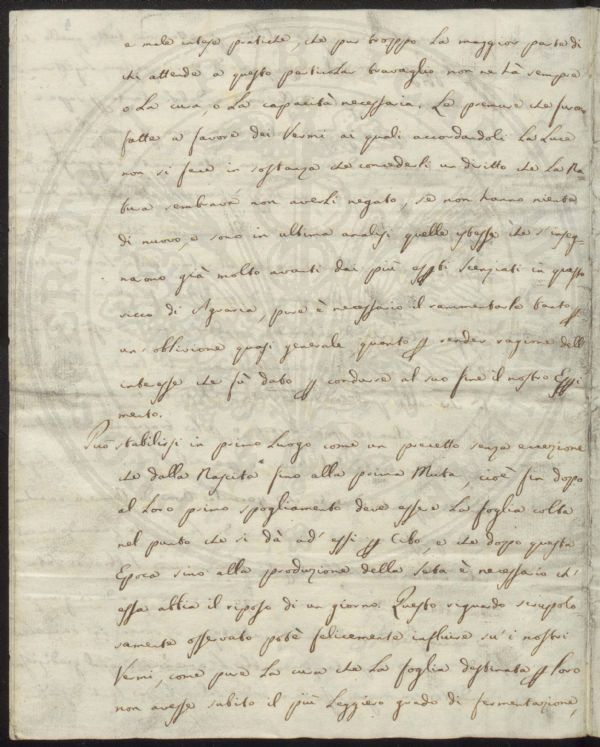 e male intese pratiche, che pur troppo la maggior parte di
chi attende a questo particolar travaglio non ne hà sempre
o la cura, o la capacità necessaria. Le premure che furon
fatte a favore dei Vermi ai quali accordandoli la Luce
non si fece in sostanza che concederli un diritto che la Na-
tura sembrava non averli negato, se non hanno niente
di nuovo, e sono in ultima analisi quelle istesse che s'inseg-
narono già molto avanti dai più esperti Scenziati in questo
ricco di Agraria, pure è necessario il rammentarle tanto per
un'oblivione quasi generale quanto per render ragione dell'
interesse che fù dato per condurre al suo fine il nostro Esperi
mento.
Può stabilirsi in primo luogo come un precetto senza eccezione
che dalla Nascita fino alla prima Muta, cioè fin dopo
al loro primo spogliamento deve essere la foglia colta
nel punto che si dà ad' essi per Cibo, e che dopo questa
Epoca sino alla produzione della Seta è necessario ch'
essa abbia il riposo di un giorno. Questo riguardo scrupolo-
samente osservato potè felicemente influire su' i nostri
Vermi, come pure la cura che la foglia destinata per loro
non avesse subito il più leggiero grado di fermentazione,